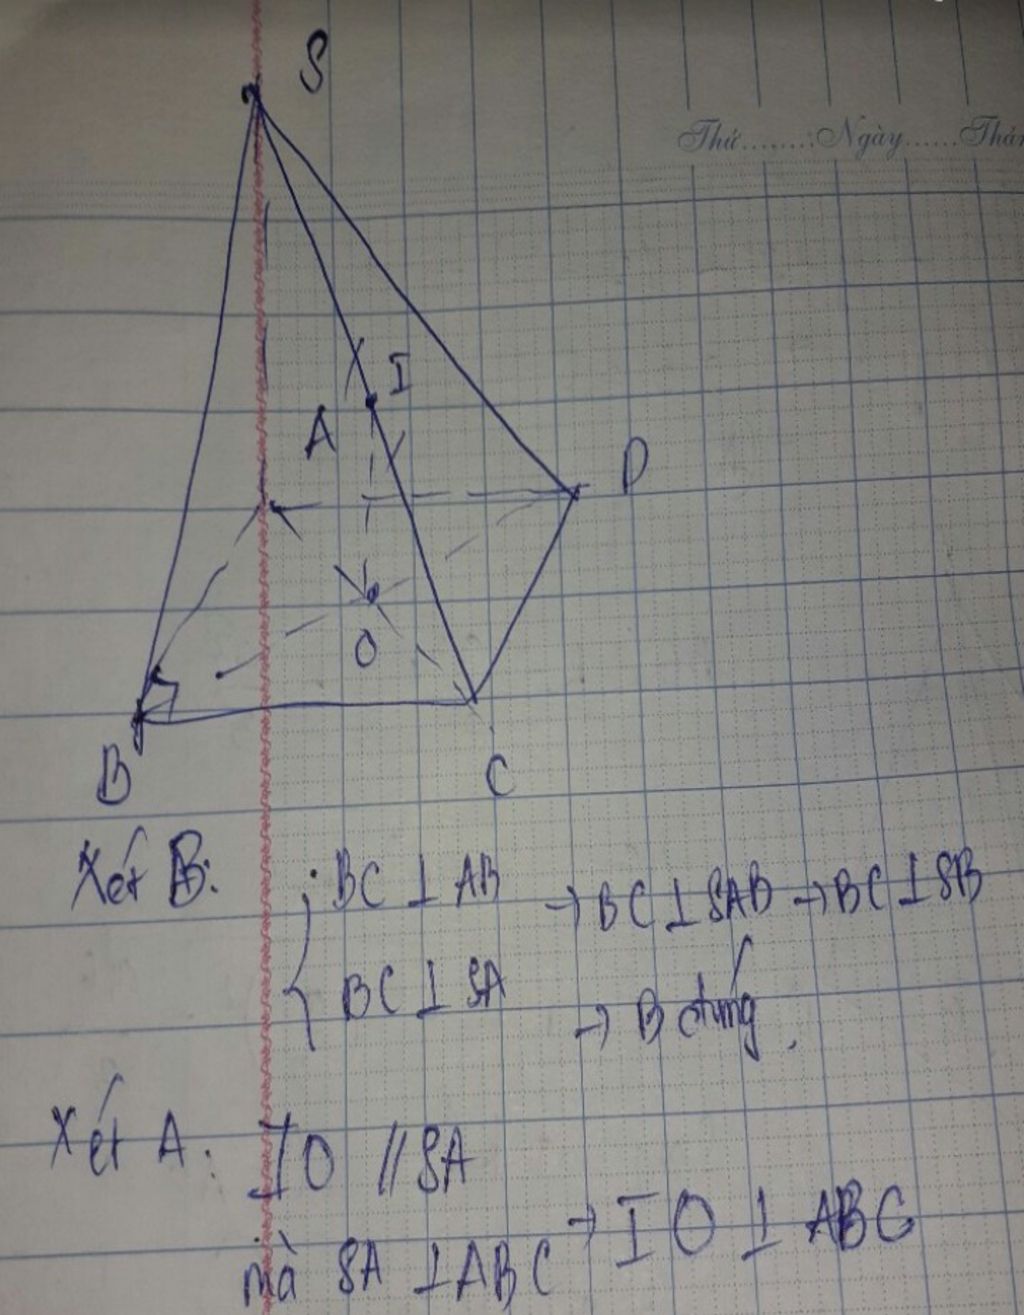 S
Thứ........Ngày......Thán
I
A
D
O
B
C
Xét B: BC ⊥ AB → BC ⊥ SAB → BC ⊥ SB
BC ⊥ SA → B đúng.
Xét A: IO // SA
mà SA ⊥ ABC → IO ⊥ ABC